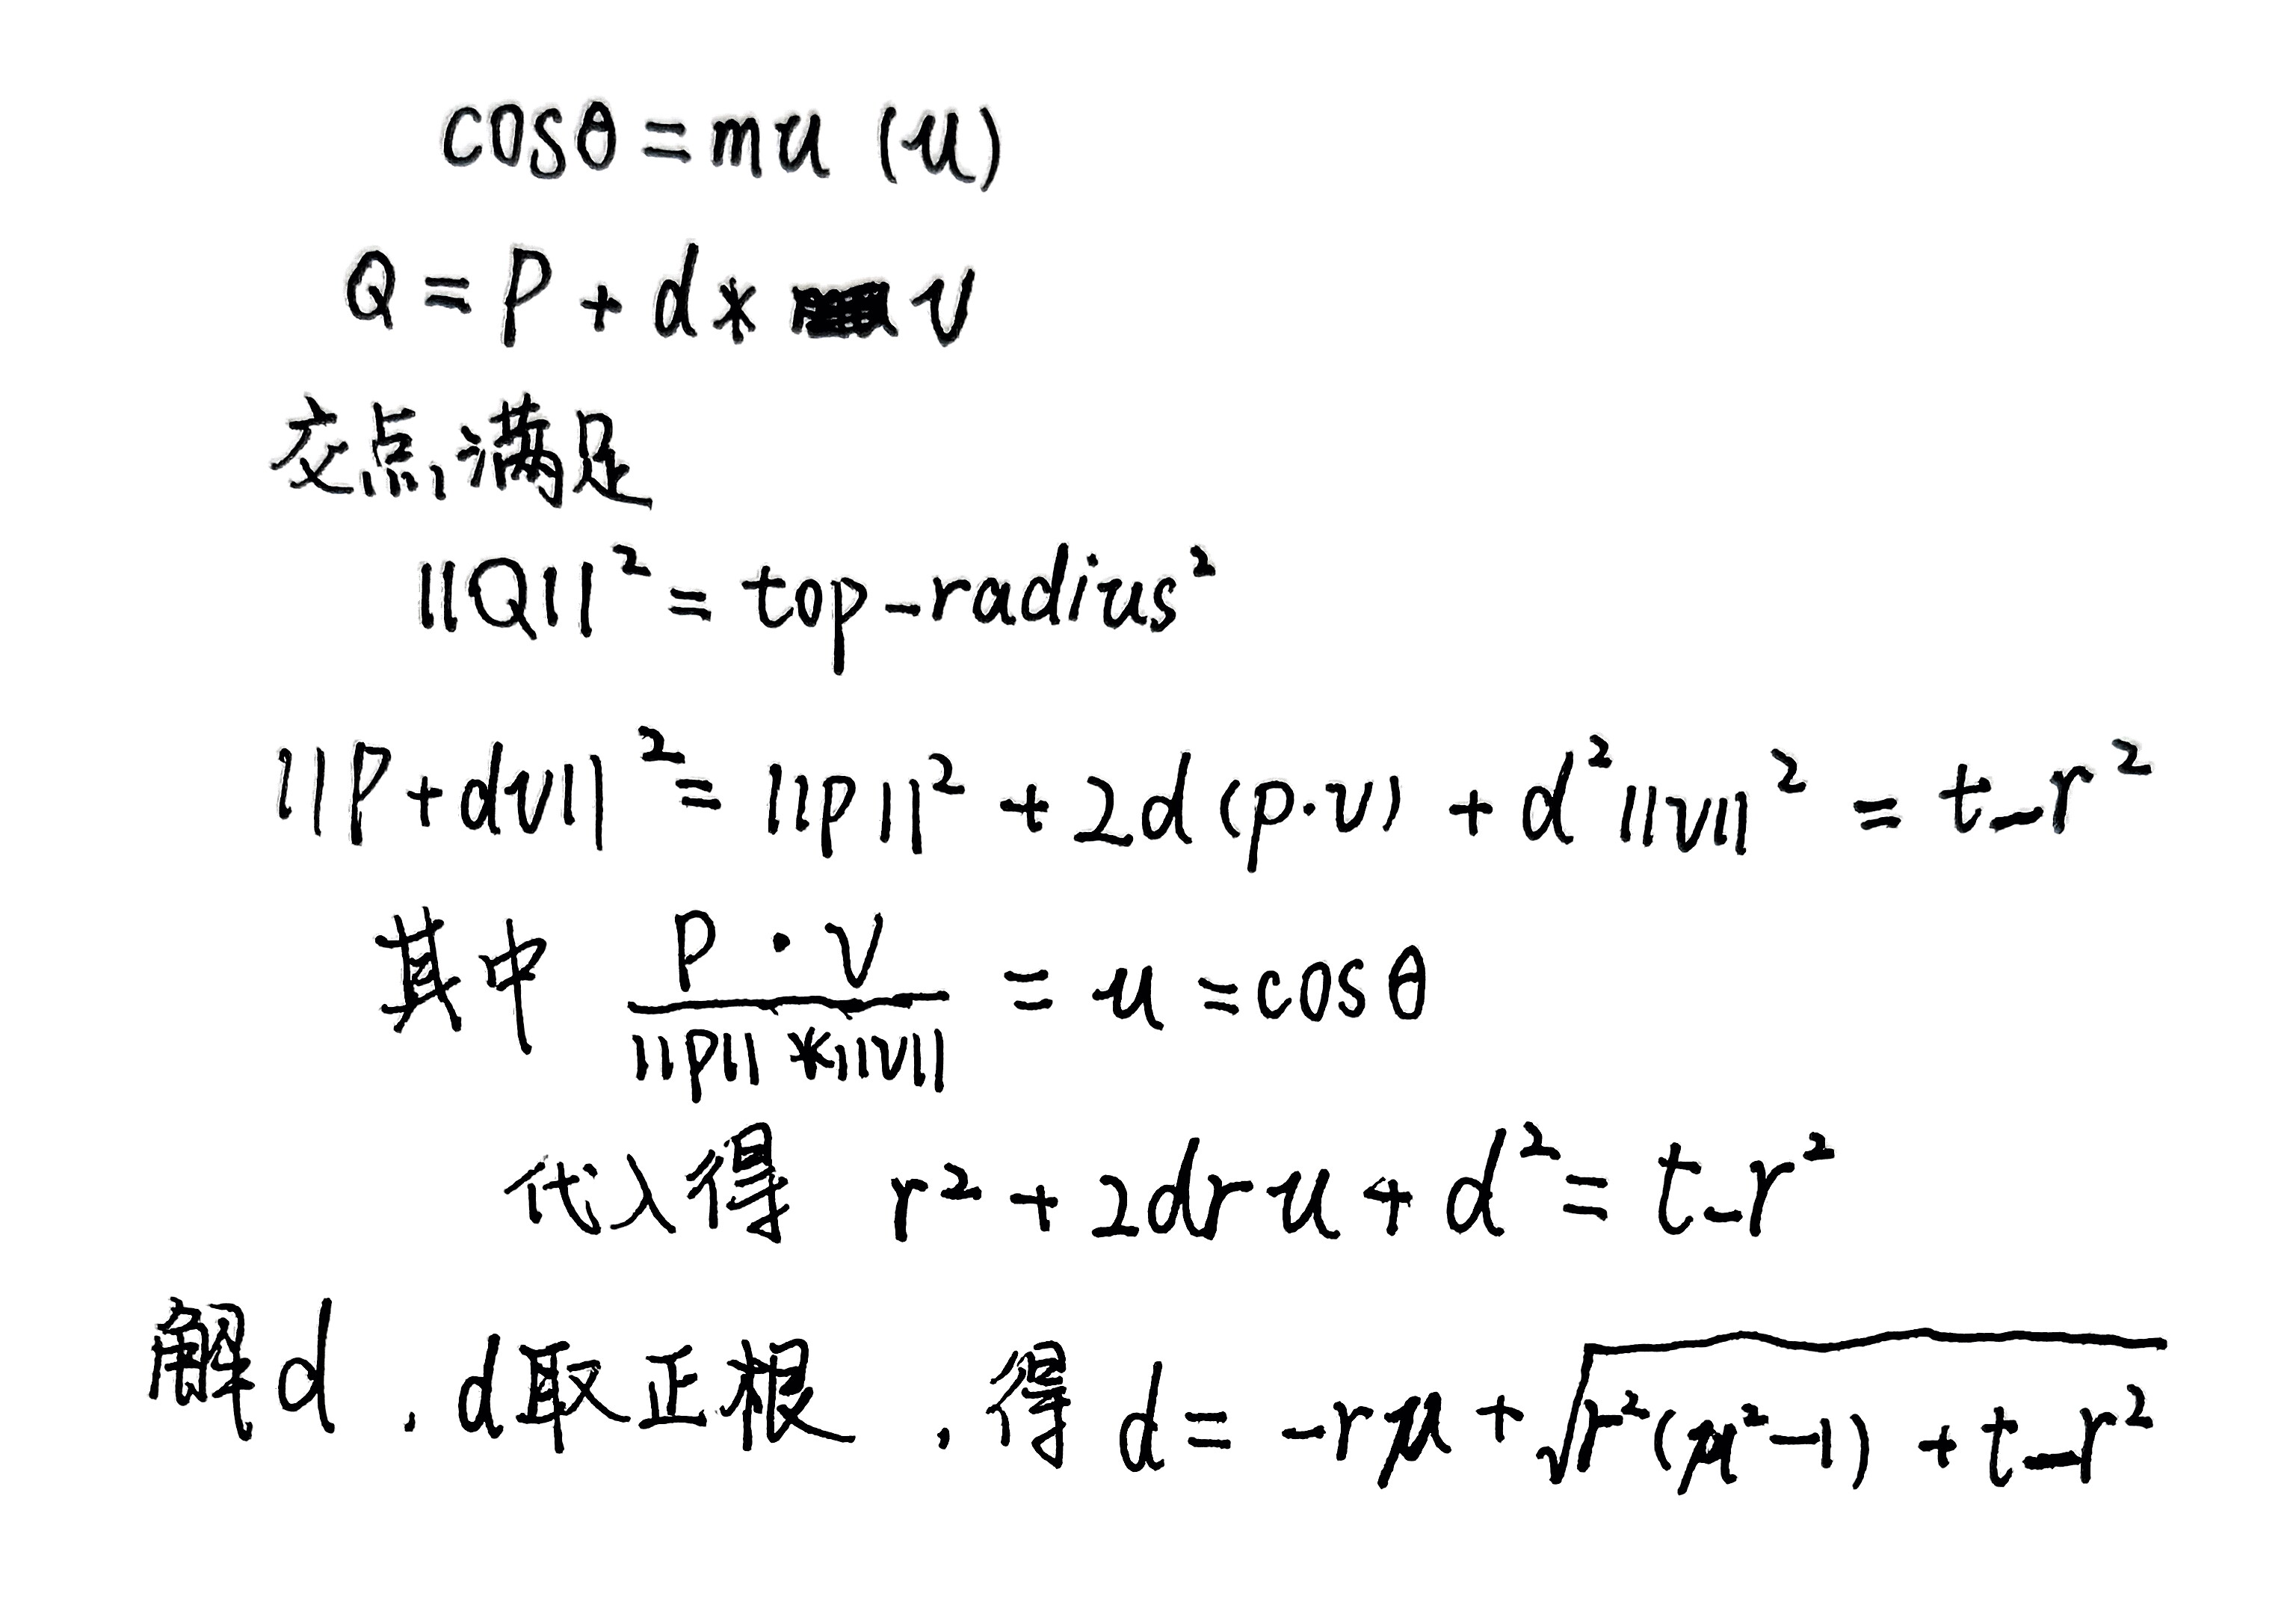 cosθ = mu (u)
Q = P + d * v
交点满足
||Q||² = top_radius²
||P+dv||² = ||p||² + 2d(p·v) + d²||v||² = t_r²
其中 P·V / ||p||*||v|| = u = cosθ
代入得 r² + 2dru + d² = t_r²
解d，d取正根，得 d = -rμ + √(r²(μ²-1) + t_r²)